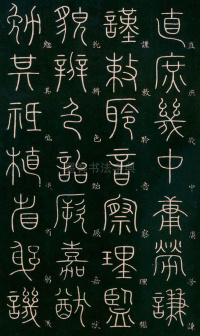 直庶幾中庸勞謙
謹敕聆音察理監
貌辨色詒厥嘉猷
勉其祗植省躬譏
书法